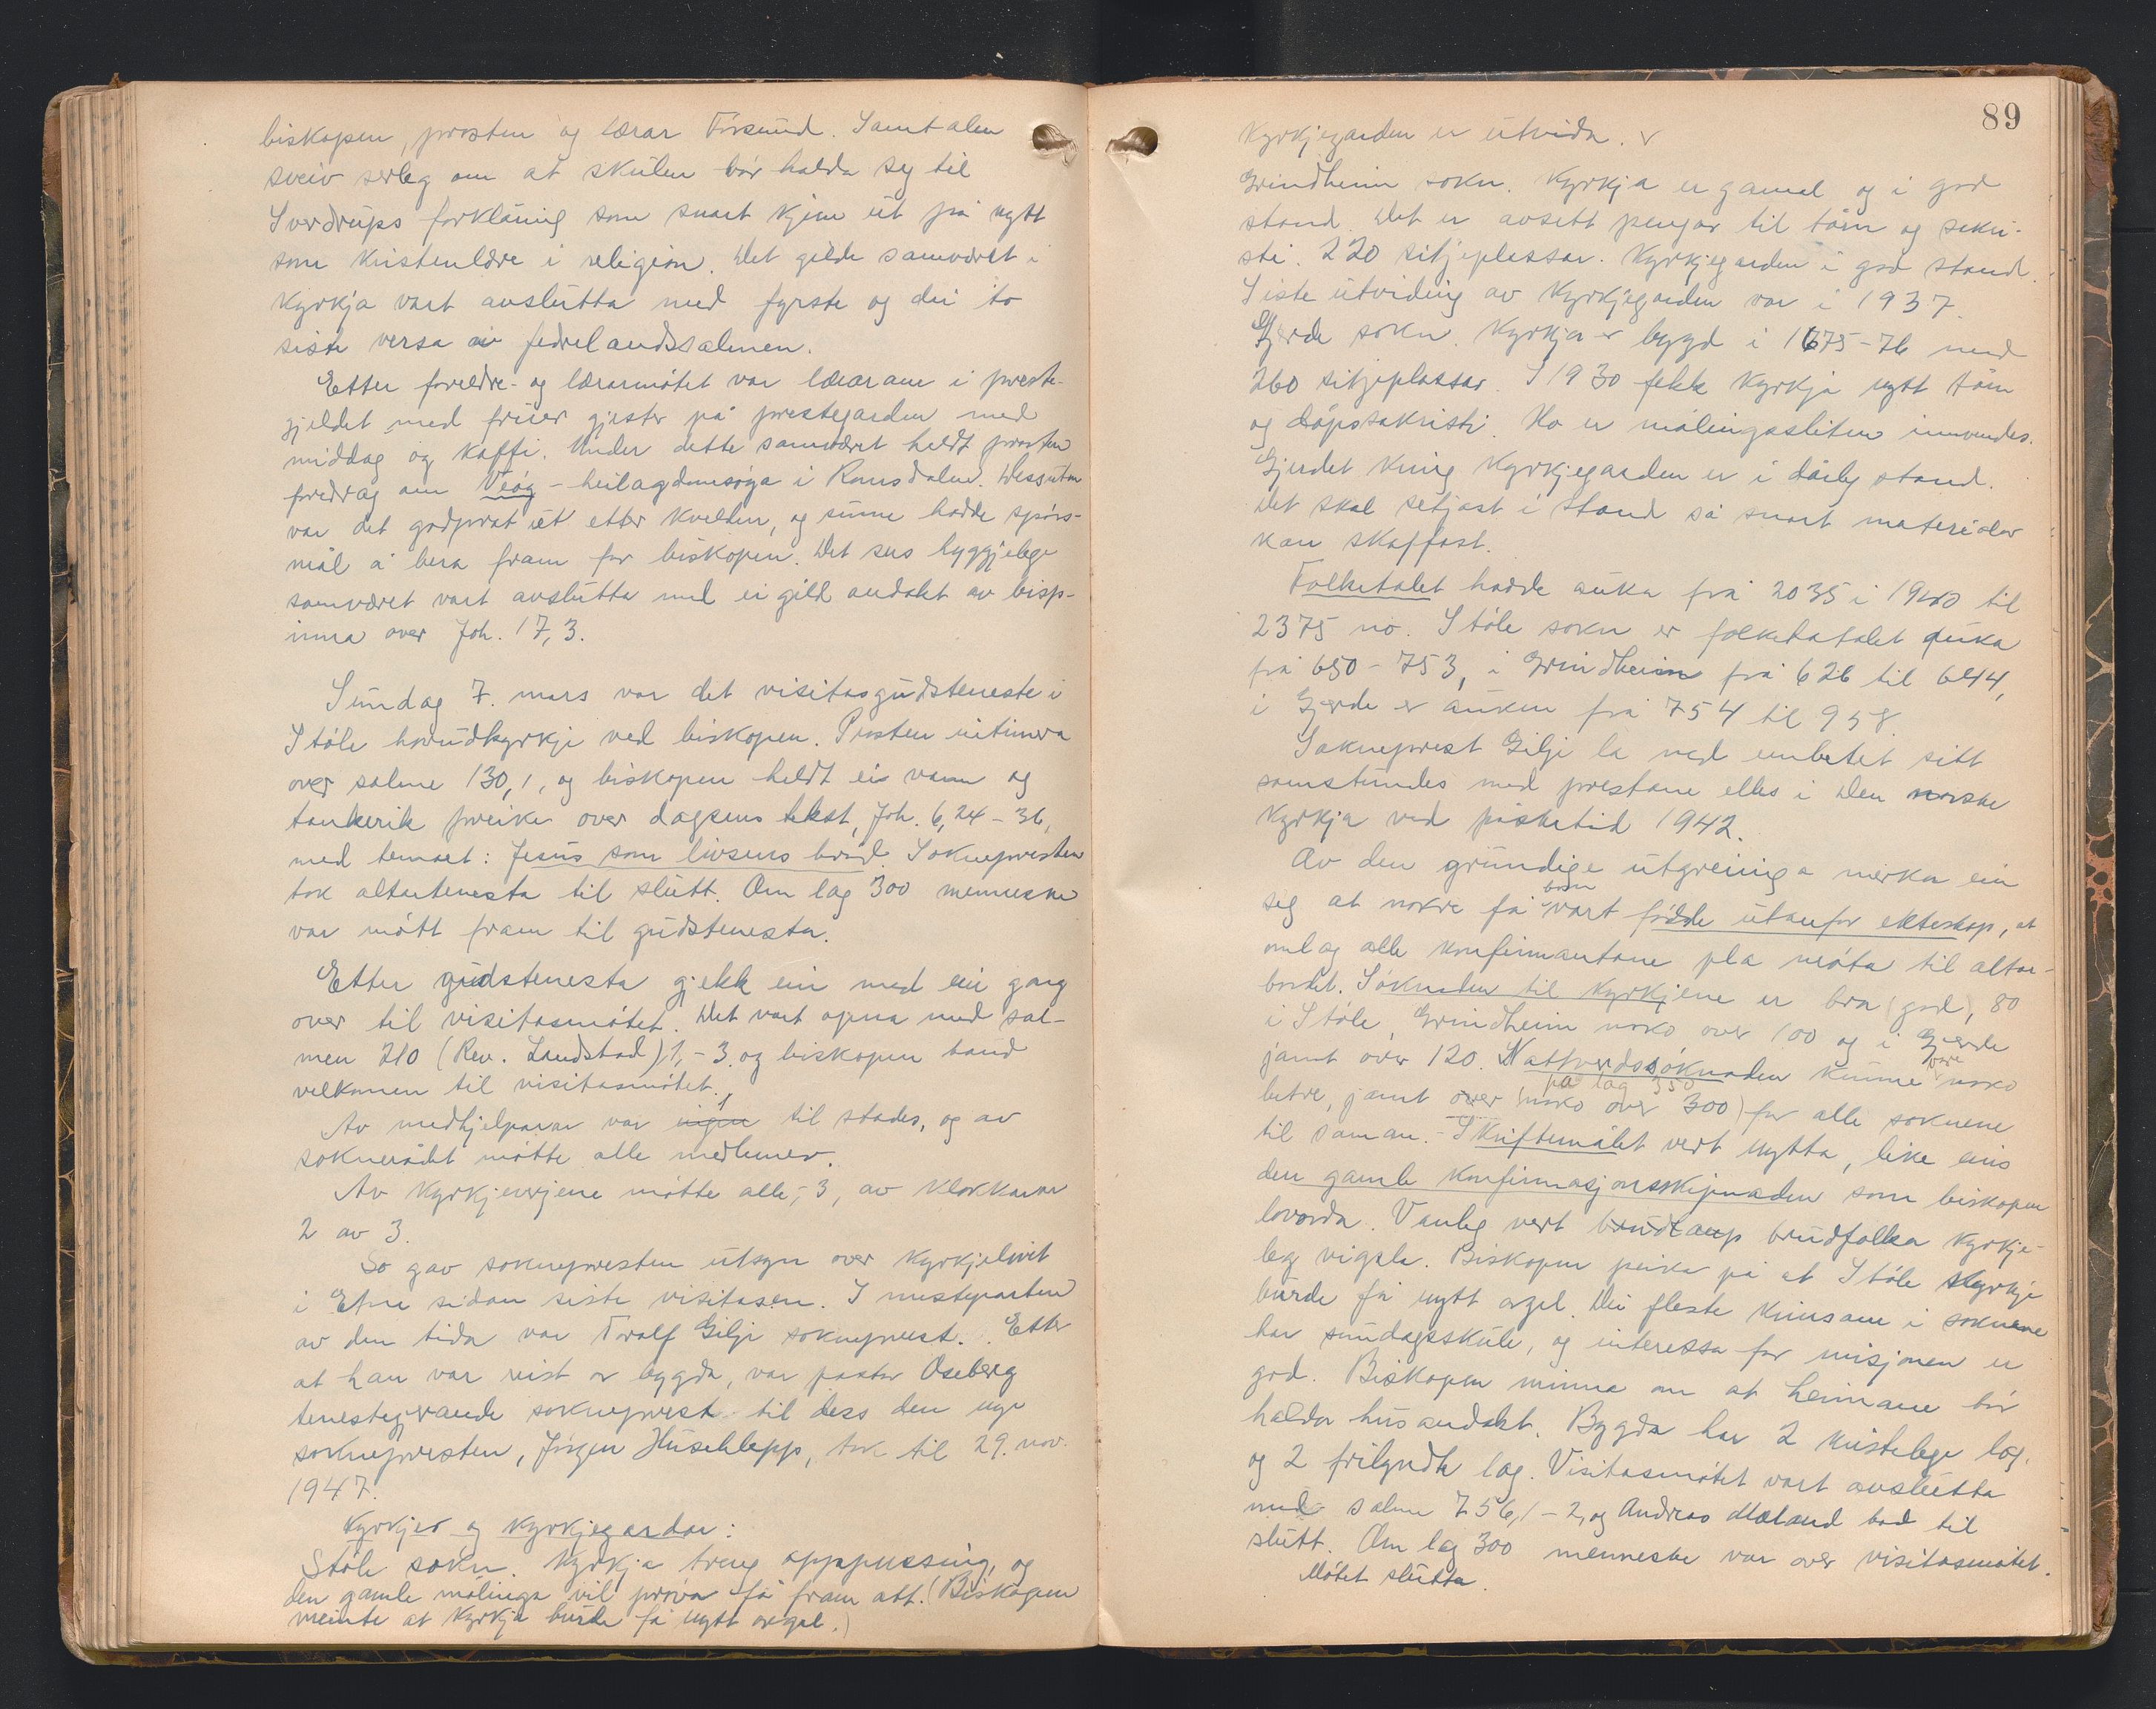 biskopen, prosten og lærar Forsund. Samtalen
sveiv serleg om at skulen bør halda seg til
Sverdrups forklåring som snart kjem ut på nytt
som kristenlære i religion. Det gilde samværet i
kyrkja vart avslutta med fyrste og dei to
siste versa av fedrelandssalmen.
Etter foreldre- og lærarmøtet var lærarane i preste-
gjeldet med fruer gjester på prestegarden med
middag og kaffi. Under dette samværet heldt prosten
foredrag om Veøy - heilagdomsøya i Romsdalen. Dessutan
var det godprat ut etter kvelden, og sume hadde spørs-
mål å bera fram for biskopen. Det sers hyggjelege
samværet vart avslutta med ei gild andakt av bisp-
inna over Joh. 17,3.
Sundag 7. mars var det visitasgudsteneste i
Støle hovudkyrkje ved biskopen. Prosten intimera
over salme 130,1, og biskopen heldt ei varm og
tankerik preike over dagsens tekst, Joh. 6,24-36,
med temaet: Jesus som livsens brød. Soknepresten
tok altartenesta til slutt. Om lag 300 menneske
var møtt fram til gudstenesta.
Etter gudstenesta gjekk ein med ein gong
over til visitasmøtet. Det vart opna med sal-
men 210 (Rev. Landstad),1,-3. og biskopen baud
velkomen til visitasmøtet.
Av medhjelparar var ingen 1 til stades, og av
soknerådet møtte alle medlemer.
Av kyrkjeverjene møtte alle,- 3, av klokkarar
2 av 3.
So gav soknepresten utsyn over kyrkjelivet
i Etne sidan siste visitasen. I mesteparten
av den tida var Toralf Gilje sokneprest. Etter
at han var reist or bygda, var pastor Oseberg
tenestegjerande sokneprest til dess den nye
soknepresten, Jørgen Huseklepp, tok til 29. nov.
1947.
Kyrkjer og kyrkjegardar:
Støle sokn. Kyrkja treng oppussing, og
den gamle målinga vil prøva få fram att. (Biskopen
meinte at kyrkja burde få nytt orgel.)
89
Kyrkjegarden er utvida. v
Grindheim sokn. Kyrkja er gamal og i god
stand. Det er avsett pengar til tårn og sakri-
sti. 220 sitjeplassar. Kyrkjegarden i god stand.
Siste utviding av kyrkjegarden var i 1937.
Gjerde sokn. Kyrkja er bygd i 1675-76 med
260 sitjeplassar. I 1930 fekk kyrkja nytt tårn
og dåpssakristi. Ho er målingssliten innvendes.
Gjerdet kring kyrkjegarden er i dårleg stand.
Det skal setjast i stand så snart materialar
kan skaffast.
Folketalet hadde auka frå 2035 i 1940 til
2375 no. I Støle sokn er folketatalet auka
frå 650 - 753, i Grindheim frå 626 til 644,
i Gjerde er auken frå 754 til 958.
Sokneprest Gilje la ned embetet sitt
samstundes med prestane elles i Den norske
kyrkja ved påsketid 1942.
Av den grundige utgreiinga merka ein
seg at nokre få born vart fødde utanfor ekteskap, at
omlag alle konfirmantane pla møta til altar-
bordet. Søknaden til kyrkjene er bra (god), 80
i Støle, Grindheim noko over 100 og i Gjerde
jamt over 120. Nattverdssøknaden kunne vore noko
betre, jamt over (noko over 300) på lag 350 for alle soknene
til saman. - Skriftemålet vert nytta, like eins
den gamle konfirmasjonsskipnaden som biskopen
lovorda. Vanleg vert brudlaup brudfolka kyrkje-
leg vigsle. Biskopen peika på at Støle kyrkje
burde få nytt orgel. Dei fleste krinsane i soknene
har sundagsskule, og interessa for misjonen er
god. Biskopen minna om at heimane bør
halda husandakt. Bygda har 2 kristelege lag
og 2 frilyndte lag. Visitasmøtet vart avslutta
med salme 756,1-2, og Andreas Mæland bad til
slutt. Om lag 300 menneske var over visitasmøtet.
Møtet slutta.